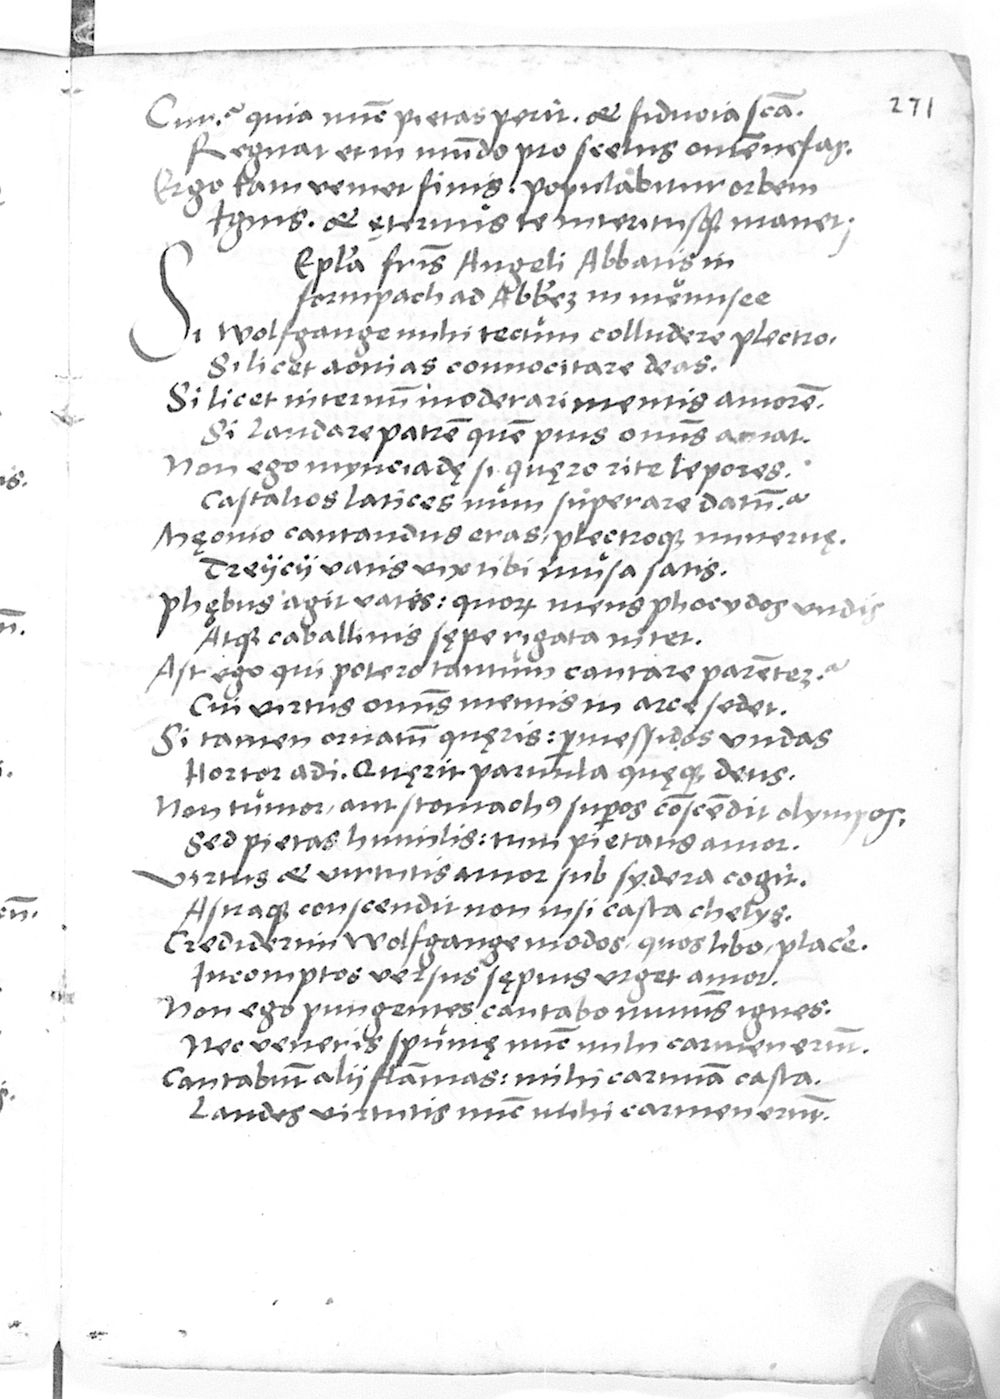 271
Cur.? quia nūc pietas perit. & fiducia scā.
Regnat et in mūdo pro scelus om̄e nefas.
Ergo tam veniet finis: populabitur orbem
Ignis. & ęternus te interitusq̄ manet;
Epl̄a fr̄is Angeli Abbatis in
formpach ad Abb̄ez in mennsee
Si Wolfgange mihi tecum colludere plectro.
Si licet aonias connocitare deas.
Si licet internū moderari mentis amorē.
Si laudare patrē quē pius om̄is amat.
Non ego mynciadę si quęro rite lepores.
Castalios latices num superare datū.?
Męonio cantandus eras, plectroqȝ minervę.
Treijcij vatis vix tibi musa satis.
Phębus agit vates: quoꝝ mens phocydos undis
Atqȝ caballinis sępe rigata nitet.
Ast ego qui potero tantum cantare parētez.?
Cui virtus om̄is mentis in arce sedet.
Si tamen ornatū quęris: ꝑmessidos undas
Hortor adi. Quęrit parvula quęqȝ deus.
Non tumor, aut stomachꝰ suꝑos cōscēdit olympos.
Sed pietas humilis: tum pietatis amor.
Virtus & virtutis amor sub sydera cogit.
Astraqȝ conscendit non nisi casta chelys.
Crediderim Wolfgange modos, quos libo, placēe.
Incomptos versus sępius urget amor.
Non ego pungentes cantabo nūinis ignes.
Nec veneris spumę nūc mihi carmen erūt.
Cantabūt alij flāmas: mihi carmīa casta.
Laudes virtutis nūc mihi carmen erūt.